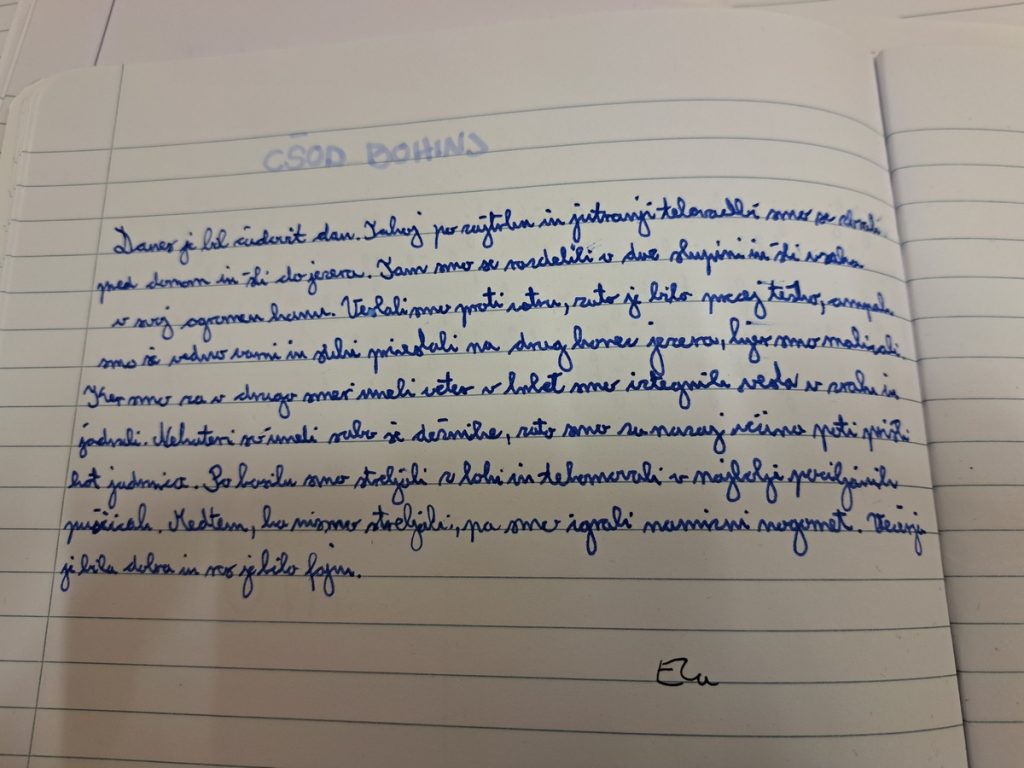 CŠOD BOHINJ
Danes je bil čudovit dan. Takoj po zajtrku in jutranji telovadbi smo se zbrali
pred domom in šli do jezera. Tam smo se razdelili v dve skupini in šli vsaka
v svoj ogromen kanu. Veslali smo proti vetru, zato je bilo precej težko, ampak
smo še vedno varni in suhi priveslali na drug konec jezera, kjer smo malicali.
Ker smo za v drugo smer imeli veter v hrbet smo iztegnili vesla v zraku in
jadrali. Nekateri so imeli sabo še dežnike, zato smo za nazaj večino poti prišli
kot jadrnica. Po kosilu smo streljali z loki in tekmovali v najbolji pociljanih
puščicah. Medtem, ko nismo streljali, pa smo igrali namizni nogomet. Večerja
je bila dobra in res je bilo fajn.